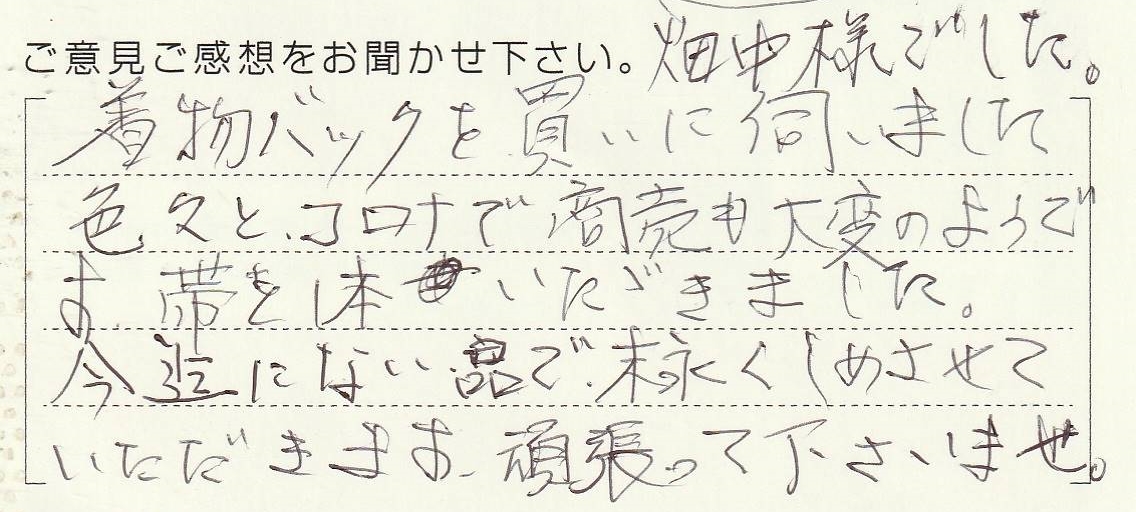 ご意見ご感想をお聞かせ下さい。 畑中様でした。
着物バックを買いに伺いました
色々と、コロナで商売も大変のようで
す、帯を1本いただきました。
今迄にない品で、末永くしめさせて
いただきます、頑張って下さいませ。